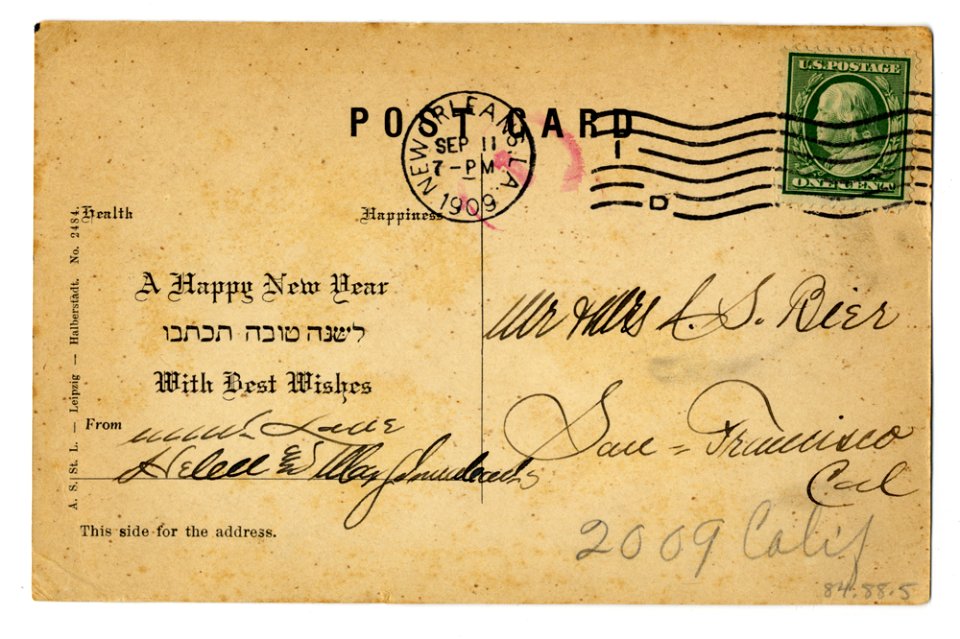 POST CARD
NEW ORLEANS, LA.
SEP 11
7-PM
1909
U.S. POSTAGE
ONE CENT
Health Happiness
A Happy New Year
לשנה טובה תכתבו
With Best Wishes
From
Helen &
A. S. St. L. — Leipzig — Halberstadt. No. 2484.
This side for the address.
Mr & Mrs S. Bier
San = Francisco
Cal
2009 Calif
84.88.5